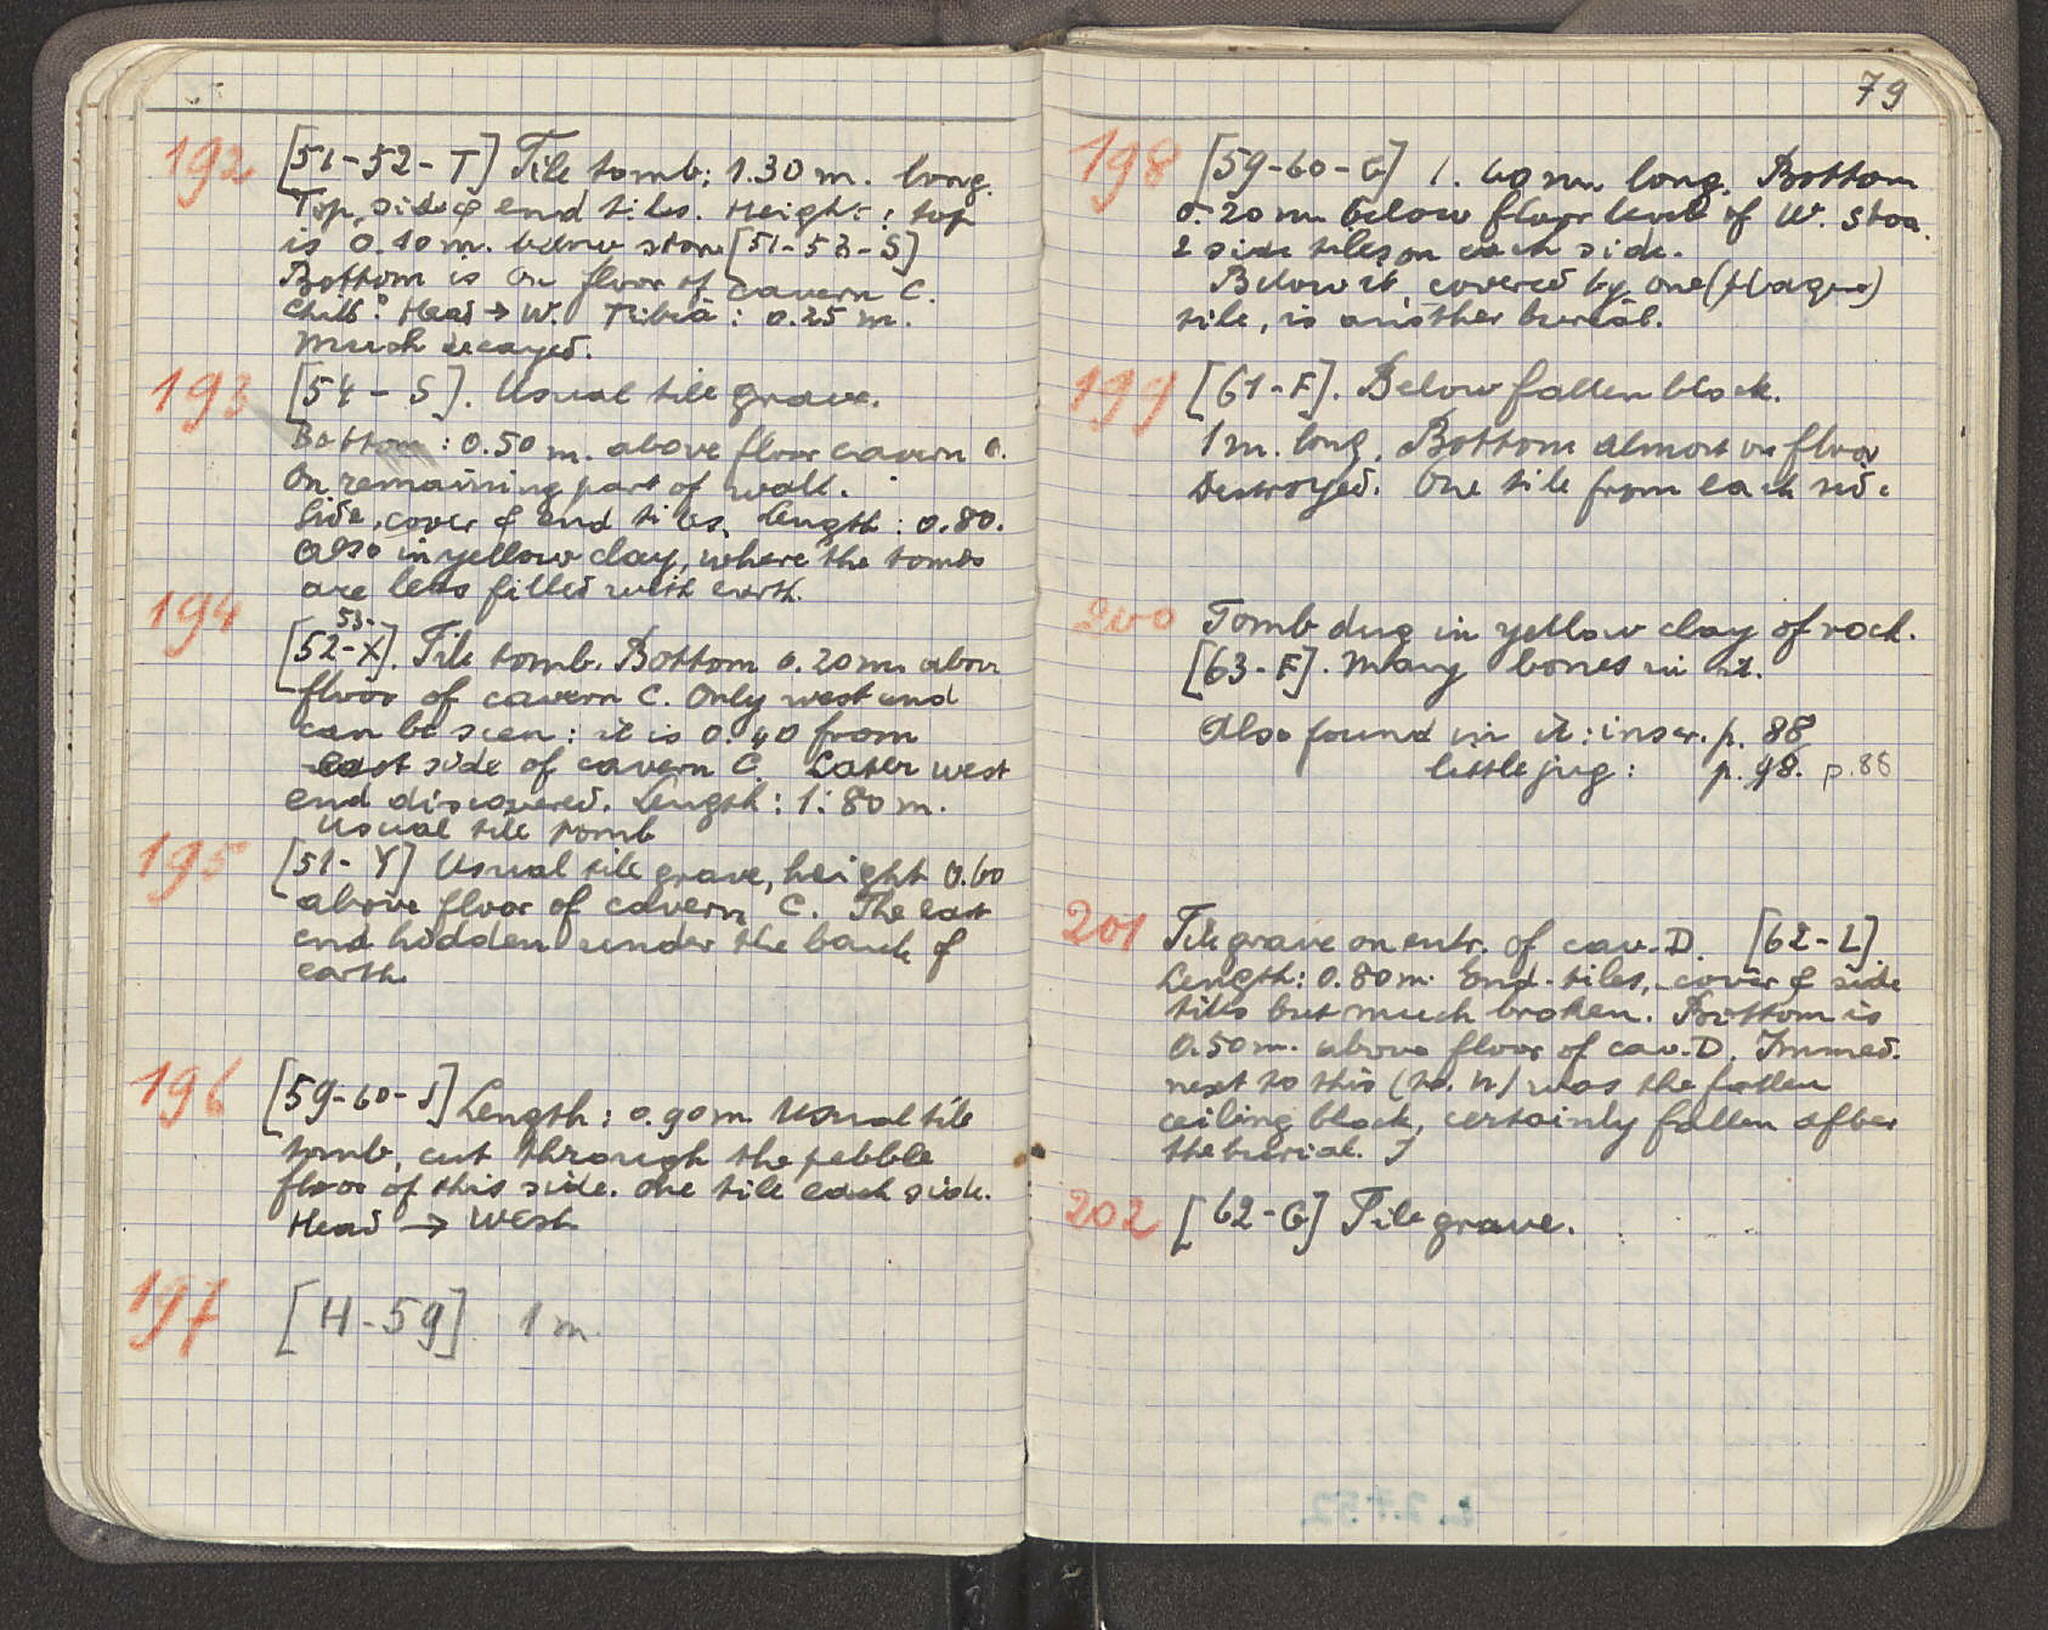 192 [51-52-T] Tile tomb: 1.30 m. long.
Top, side & end tiles. Height: top
is 0.10 m. below stone [51-53-S]
Bottom is on floor of cavern C.
Child? Head → W. Tibia: 0.25 m.
Much decayed.
193 [54-S]. Usual tile grave.
Bottom: 0.50 m. above floor cavern C.
On remaining part of wall.
Side, cover & end tiles. Length: 0.80.
Also in yellow clay, where the tombs
are less filled with earth.
194
53-
[52-X]. Tile tomb. Bottom 0.20 m. above
floor of cavern C. Only west end
can be seen: it is 0.40 from
east side of cavern C. Later west
end discovered. Length: 1.80 m.
Usual tile tomb
195 [51-Y] Usual tile grave, height 0.60
above floor of cavern C. The east
end hidden under the bank of
earth.
196 [59-60-J] Length: 0.90 m. Usual tile
tomb, cut through the pebble
floor of this side. One tile each side.
Head → West
197 [H-59]. 1 m.
79
198 [59-60-G] 1.60 m. long. Bottom
0.20 m. below floor level of W. Stoa.
2 side tiles on each side.
Below it, covered by one (plaque)
tile, is another burial.
199 [61-F]. Below fallen block.
1 m. long. Bottom almost on floor
Destroyed. One tile from each side
200 Tomb dug in yellow clay of rock.
[63-F]. Many bones in it.
Also found in it: inscr. p. 88
little jug: p. 98. p. 88
201 Tile grave on entr. of cav. D. [62-L].
Length: 0.80 m. End-tiles, cover & side
tiles but much broken. Bottom is
0.50 m. above floor of cav. D. Immed.
next to this (to. n.) was the fallen
ceiling block, certainly fallen after
the burial. J
202 [62-G] Tile grave.